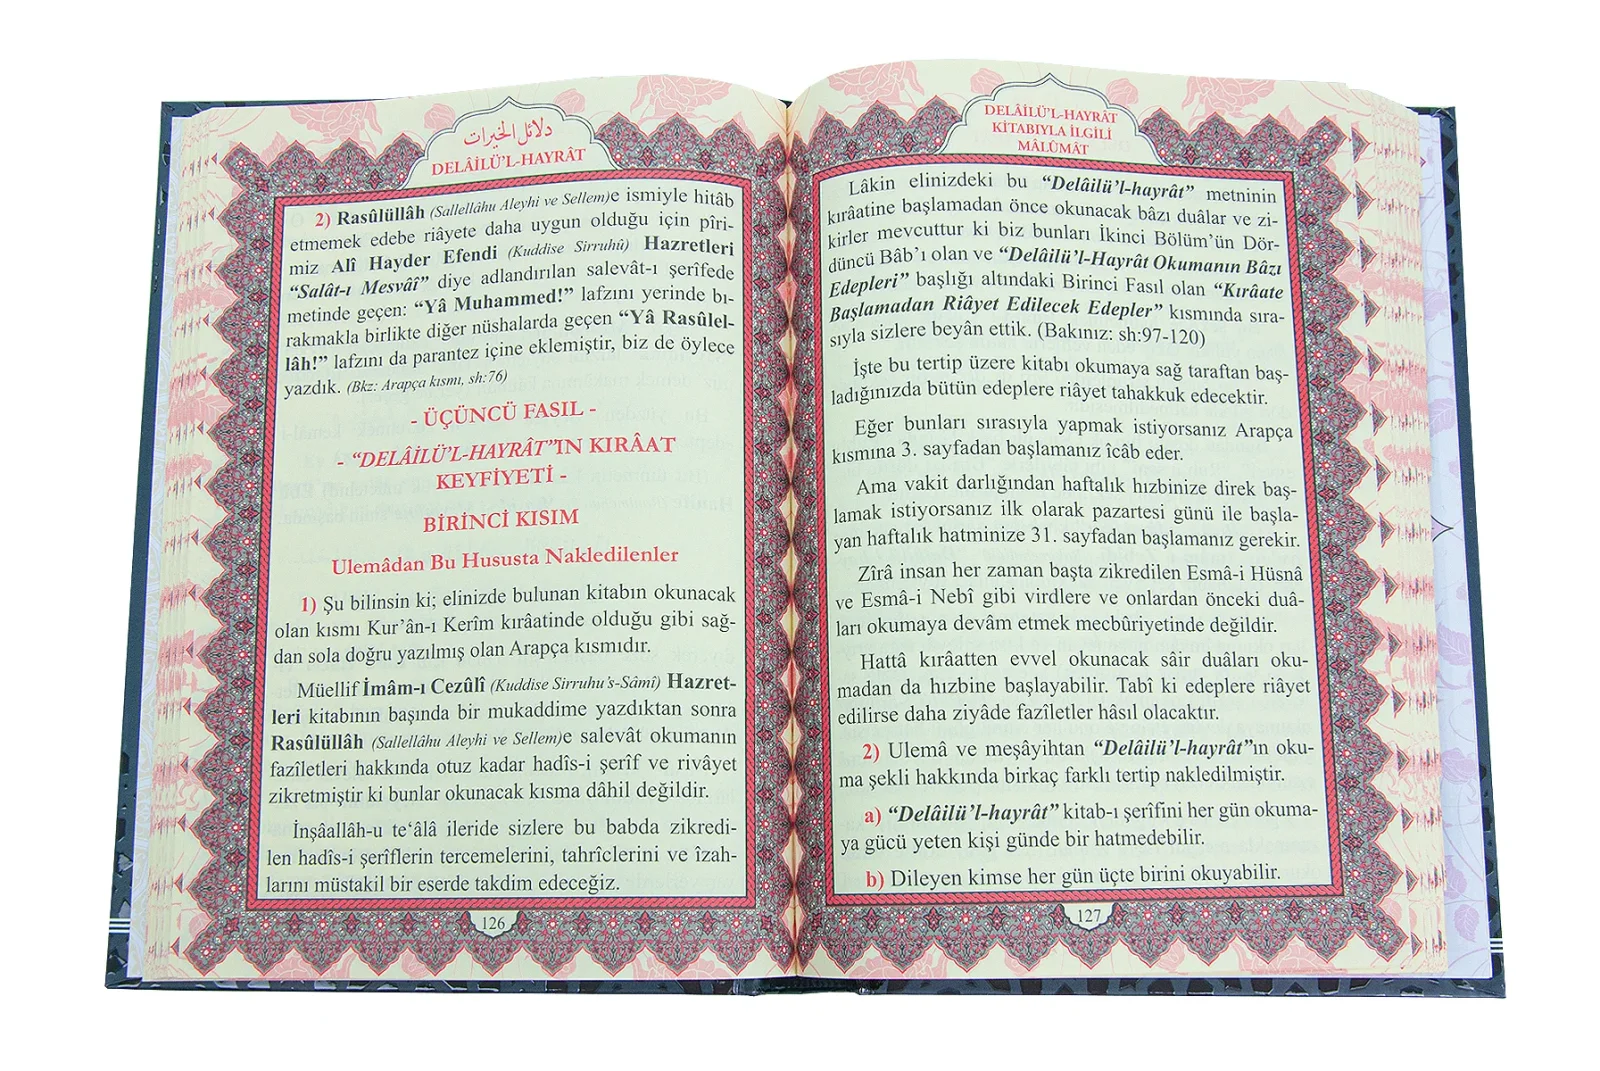 دلائل الخيرات
DELÂİLÜ'L-HAYRÂT
2) Rasûlüllâh (Sallellâhu Aleyhi ve Sellem)e ismiyle hitâb
etmemek edebe riâyete daha uygun olduğu için pîri-
miz Alî Hayder Efendi (Kuddise Sirruhû) Hazretleri
“Salât-ı Mesvâî” diye adlandırılan salevât-ı şerîfede
metinde geçen: “Yâ Muhammed!” lafzını yerinde bı-
rakmakla birlikte diğer nüshalarda geçen “Yâ Rasûlel-
lâh!” lafzını da parantez içine eklemiştir, biz de öylece
yazdık. (Bkz: Arapça kısmı, sh:76)
- ÜÇÜNCÜ FASIL -
- “DELÂİLÜ'L-HAYRÂT”IN KIRÂAT
KEYFİYETİ -
BİRİNCİ KISIM
Ulemâdan Bu Hususta Nakledilenler
1) Şu bilinsin ki; elinizde bulunan kitabın okunacak
olan kısmı Kur'ân-ı Kerîm kırâatinde olduğu gibi sağ-
dan sola doğru yazılmış olan Arapça kısmıdır.
Müellif İmâm-ı Cezûlî (Kuddise Sirruhu's-Sâmî) Hazret-
leri kitabının başında bir mukaddime yazdıktan sonra
Rasûlüllâh (Sallellâhu Aleyhi ve Sellem)e salevât okumanın
fazîletleri hakkında otuz kadar hadîs-i şerîf ve rivâyet
zikretmiştir ki bunlar okunacak kısma dâhil değildir.
İnşâallâh-u te‘âlâ ileride sizlere bu babda zikredi-
len hadîs-i şerîflerin tercemelerini, tahrîclerini ve îzah-
larını müstakil bir eserde takdim edeceğiz.
126
DELÂİLÜ'L-HAYRÂT
KİTABIYLA İLGİLİ
MÂLÛMÂT
Lâkin elinizdeki bu “Delâilü'l-hayrât” metninin
kırâatine başlamadan önce okunacak bâzı duâlar ve zi-
kirler mevcuttur ki biz bunları İkinci Bölüm'ün Dör-
düncü Bâb'ı olan ve “Delâilü'l-Hayrât Okumanın Bâzı
Edepleri” başlığı altındaki Birinci Fasıl olan “Kırâate
Başlamadan Riâyet Edilecek Edepler” kısmında sıra-
sıyla sizlere beyân ettik. (Bakınız: sh:97-120)
İşte bu tertip üzere kitabı okumaya sağ taraftan baş-
ladığınızda bütün edeplere riâyet tahakkuk edecektir.
Eğer bunları sırasıyla yapmak istiyorsanız Arapça
kısmına 3. sayfadan başlamanız îcâb eder.
Ama vakit darlığından haftalık hızbinize direk baş-
lamak istiyorsanız ilk olarak pazartesi günü ile başla-
yan haftalık hatminize 31. sayfadan başlamanız gerekir.
Zîrâ insan her zaman başta zikredilen Esmâ-i Hüsnâ
ve Esmâ-i Nebî gibi virdlere ve onlardan önceki duâ-
ları okumaya devâm etmek mecbûriyetinde değildir.
Hattâ kırâatten evvel okunacak sâir duâları oku-
madan da hızbine başlayabilir. Tabî ki edeplere riâyet
edilirse daha ziyâde fazîletler hâsıl olacaktır.
2) Ulemâ ve meşâyihtan “Delâilü'l-hayrât”ın oku-
ma şekli hakkında birkaç farklı tertip nakledilmiştir.
a) “Delâilü'l-hayrât” kitab-ı şerîfini her gün okuma-
ya gücü yeten kişi günde bir hatmedebilir.
b) Dileyen kimse her gün üçte birini okuyabilir.
127